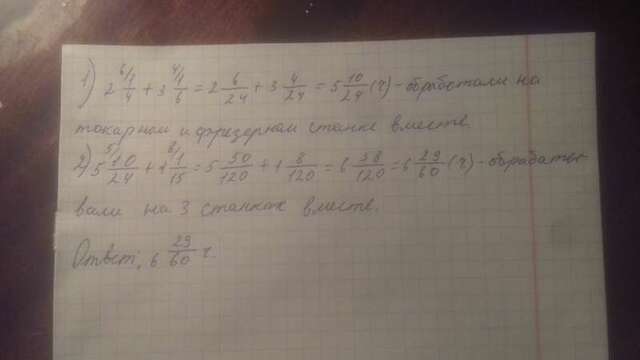 1) 2 1/4 + 3 1/6 = 2 6/24 + 3 4/24 = 5 10/24 (ч) - обработали на
токарном и фрезерном станке вместе.
2) 5 10/24 + 1 1/15 = 5 50/120 + 1 8/120 = 6 58/120 = 6 29/60 (ч) - обрабаты-
вали на 3 станке вместе.
Ответ: 6 29/60 ч.